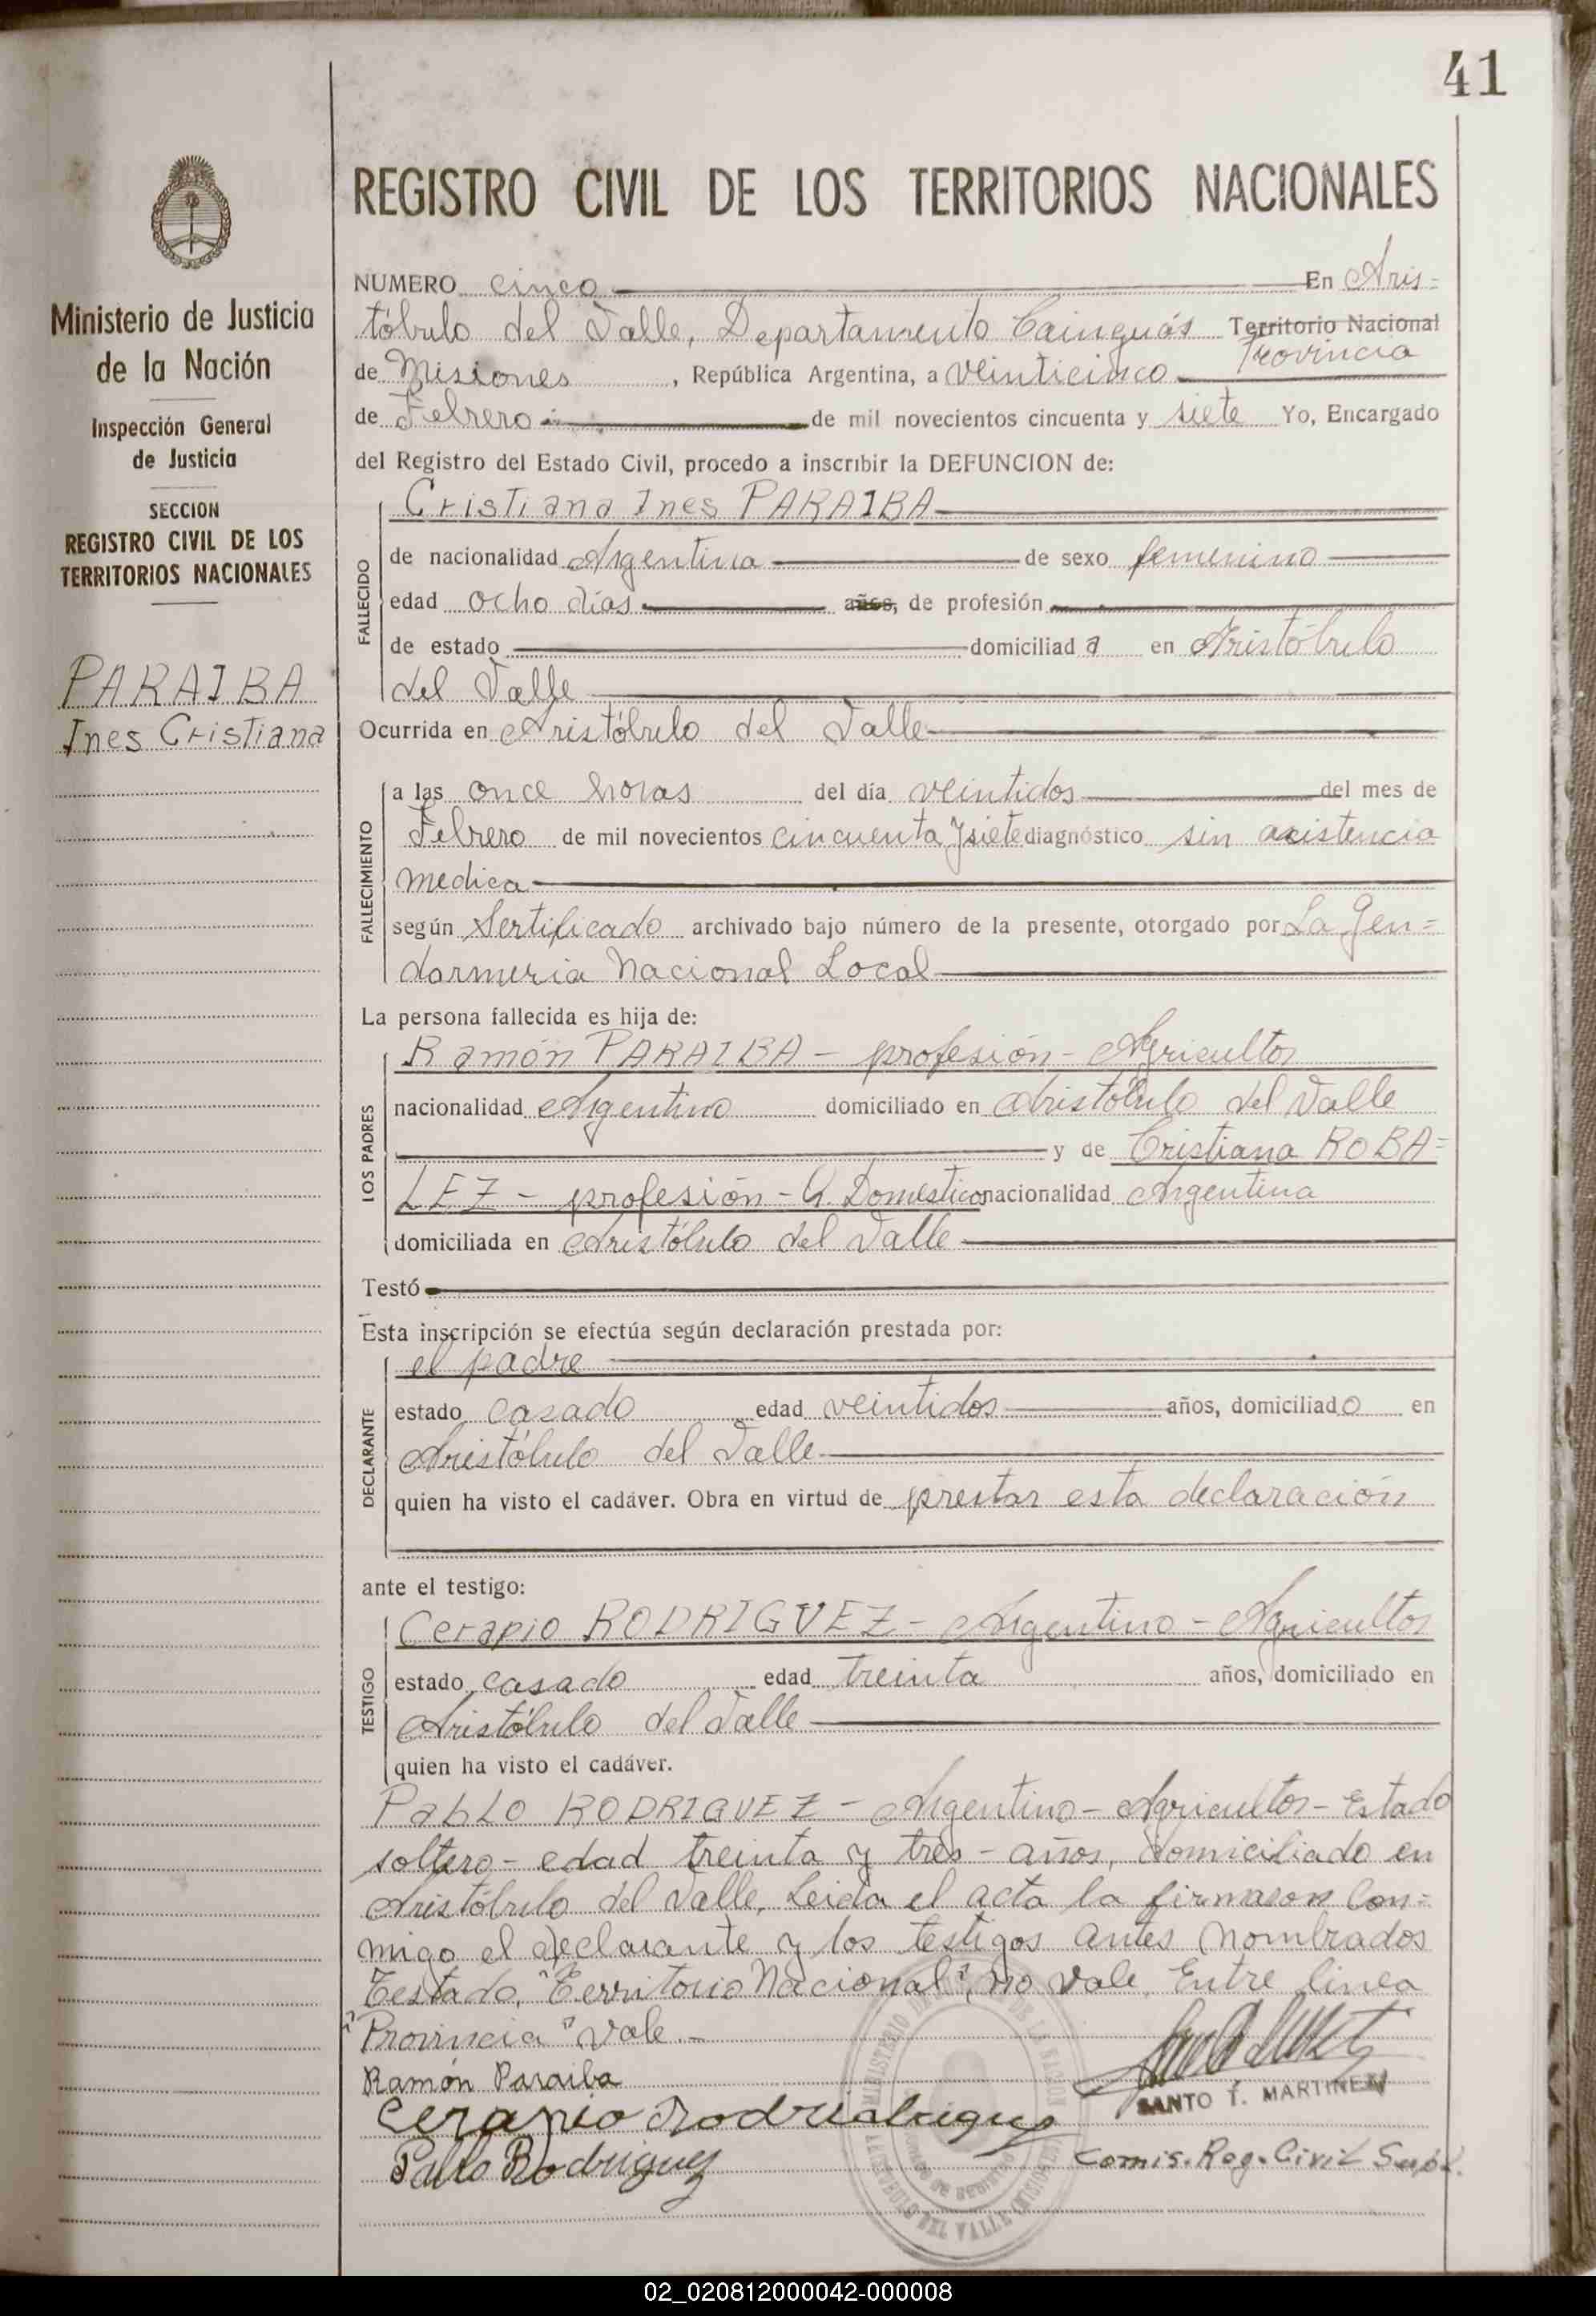 41
Ministerio de Justicia
de la Nación
Inspección General
de Justicia
SECCION
REGISTRO CIVIL DE LOS
TERRITORIOS NACIONALES
PARAIBA
Ines Cristiana
REGISTRO CIVIL DE LOS TERRITORIOS NACIONALES
NUMERO cinco En Aris=
tóbulo del Valle, Departamento Cainguás Territorio Nacional
Provincia
de Misiones, República Argentina, a veinticinco
de Febrero de mil novecientos cincuenta y siete Yo, Encargado
del Registro del Estado Civil, procedo a inscribir la DEFUNCION de:
FALLECIDO
Cristiana Ines PARAIBA
de nacionalidad Argentina de sexo femenino
edad ocho días años, de profesión
de estado domiciliad a en Aristóbulo
del Valle
Ocurrida en Aristóbulo del Valle
FALLECIMIENTO
a las once horas del día veintidos del mes de
Febrero de mil novecientos cincuenta y siete diagnóstico sin asistencia
medica
según Sertificado archivado bajo número de la presente, otorgado por La Gen=
darmeria Nacional Local
La persona fallecida es hija de:
LOS PADRES
Ramón PARAIBA - profesión - Agricultor
nacionalidad Argentino domiciliado en Aristóbulo del Valle
y de Cristiana ROBA=
LEZ - profesión - Q. Domestico nacionalidad Argentina
domiciliada en Aristóbulo del Valle
Testó
Esta inscripción se efectúa según declaración prestada por:
DECLARANTE
el padre
estado casado edad veintidos años, domiciliado en
Aristóbulo del Valle
quien ha visto el cadáver. Obra en virtud de prestar esta declaración
ante el testigo:
TESTIGO
Cerapio RODRIGUEZ - Argentino - Agricultor
estado casado edad treinta años, domiciliado en
Aristóbulo del Valle
quien ha visto el cadáver.
Pablo RODRIGUEZ - Argentino - Agricultor - Estado
soltero - edad treinta y tres - años, domiciliado en
Aristóbulo del Valle, Leida el acta la firmaron Con=
migo el declarante y los testigos antes nombrados
Testado, "Territorio Nacional" no vale, Entre linea
"Provincia" vale.-
Ramón Paraiba
SANTO T. MARTINEZ
Cerapio
Pablo Rodriguez
Comis. Reg. Civil Supl.
02_020812000042-000008